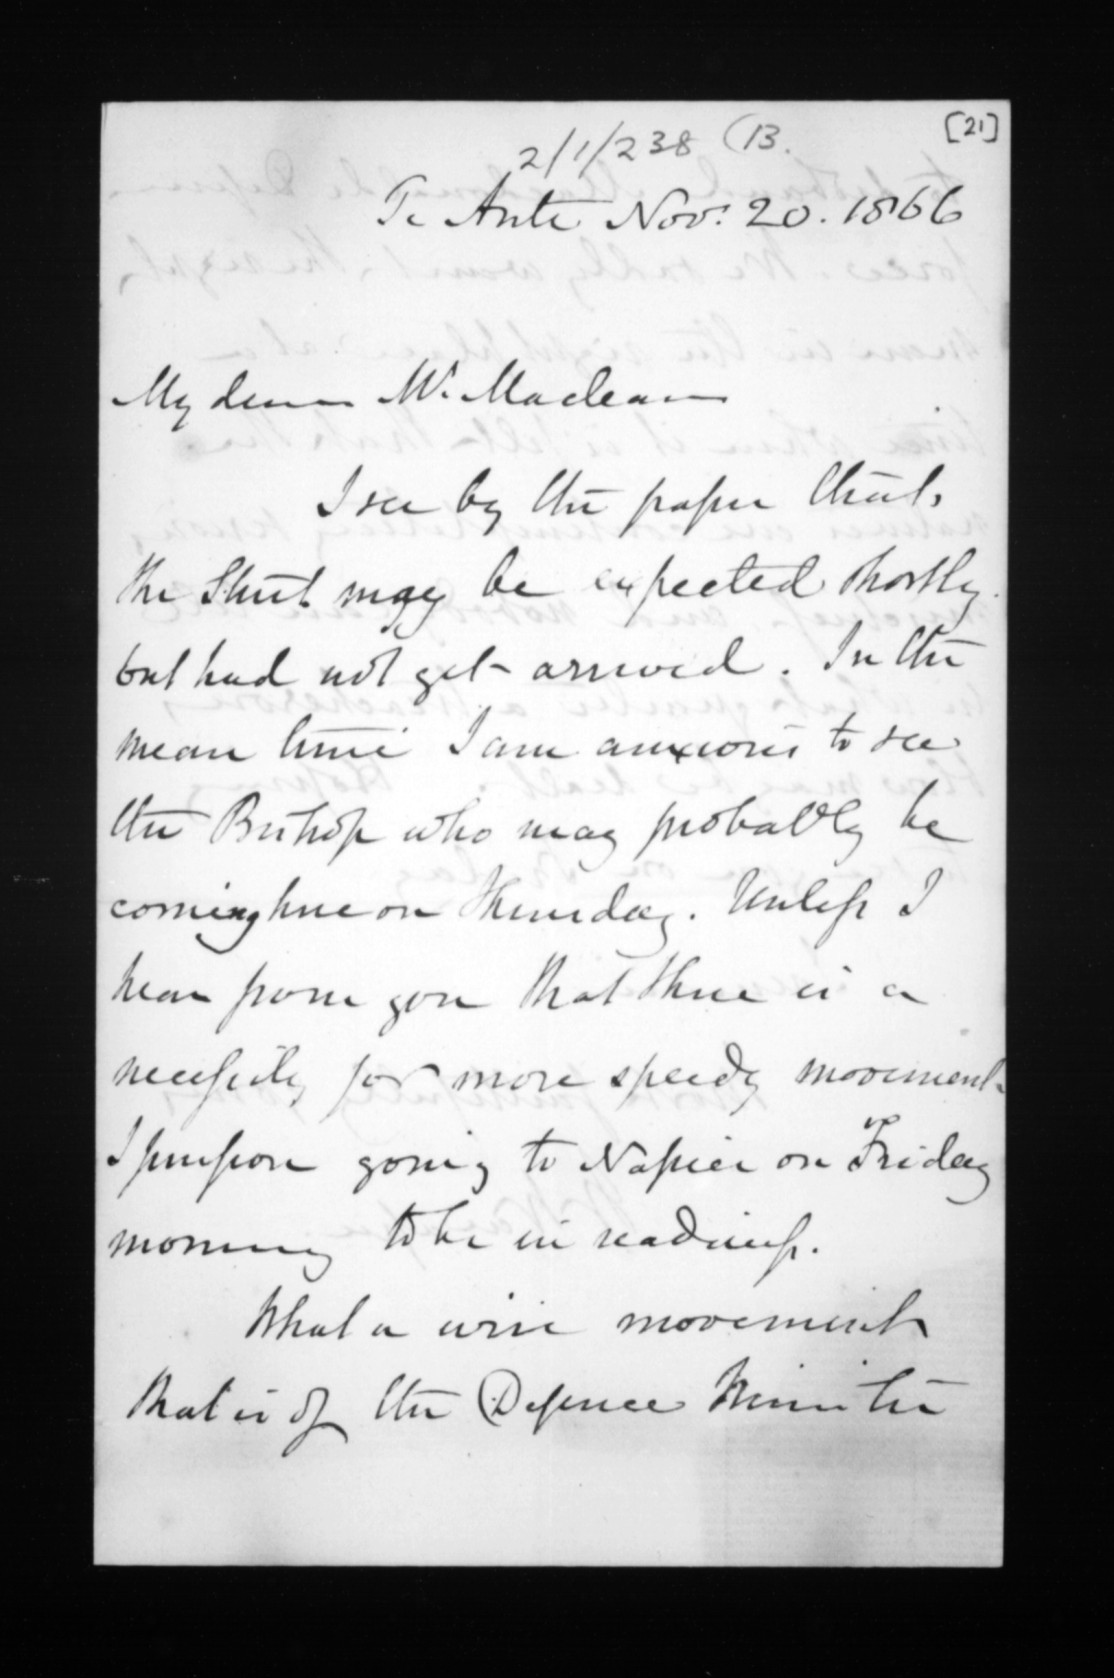 [21]
2/1/238 (13.
Te Aute Nov: 20. 1866
My dear Mr. Maclean
I see by the paper that
the Sturt may be expected shortly.
but had not yet arrived. In the
mean time I am anxious to see
the Bishop who may probably be
coming here on Thursday. Unless I
hear from you that there is a
necessity for more speedy movement
I purpose going to Napier on Friday
morning to be in readiness.
What a wise movement
that is of the Defence Minister